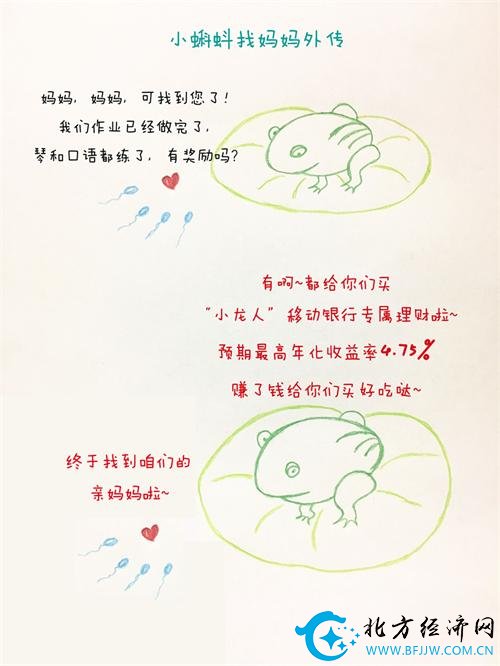 小蝌蚪找妈妈外传
妈妈，妈妈，可找到您了！
我们作业已经做完了，
琴和口语都练了，有奖励吗？
有啊~都给你们买
“小龙人”移动银行专属理财啦~
预期最高年化收益率4.75%
赚了钱给你们买好吃哒~
终于找到咱们的
亲妈妈啦~
北方经济网
WWW.BFJJW.COM.CN